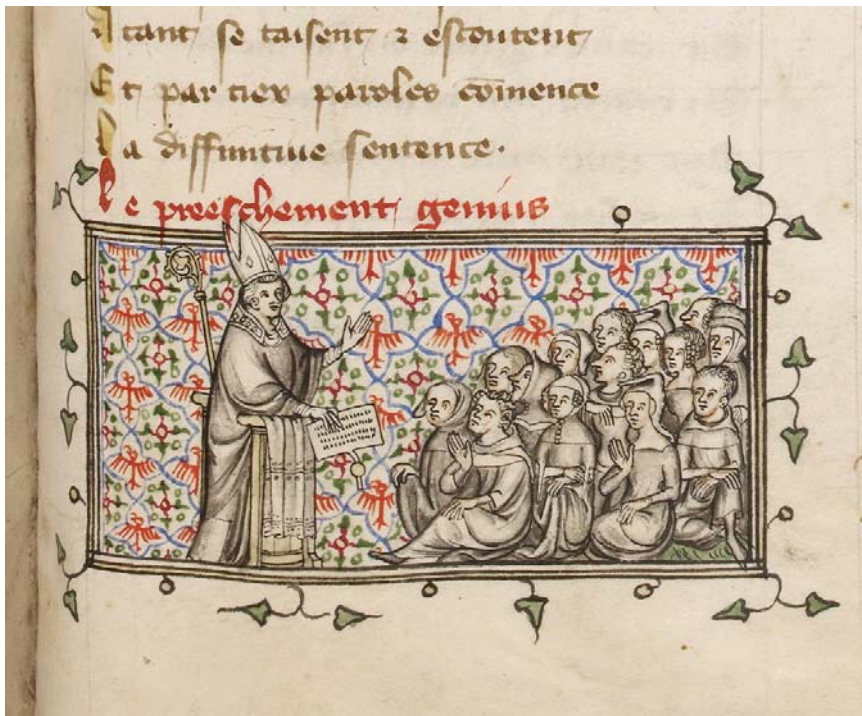 A tant se taisent ⁊ escoutent
Et par tiex paroles cōmence
La diffinitiue sentence.
Le preeschement genius